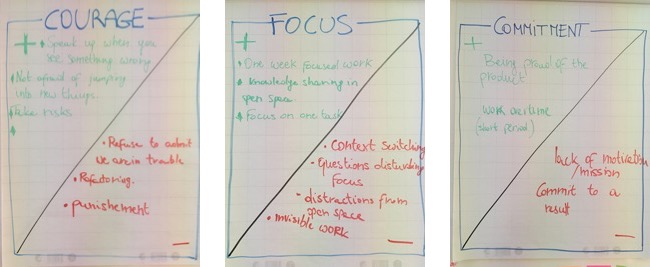 COURAGE
+
Speak up when you
see something wrong
Not afraid of jumping
into new things.
Take risks
Refuse to admit
We are in trouble
Refactoring.
punishement
—
FOCUS
+
One week focused work
Knowledge sharing in
open space
Focus on one task
Context switching
Questions disturbing
Focus
distractions from
open space
Invisible WORK
—
COMMITMENT
+
Being proud of the
product
work overtime
(short period)
lack of motivation
/mission
Commit to a
result
—